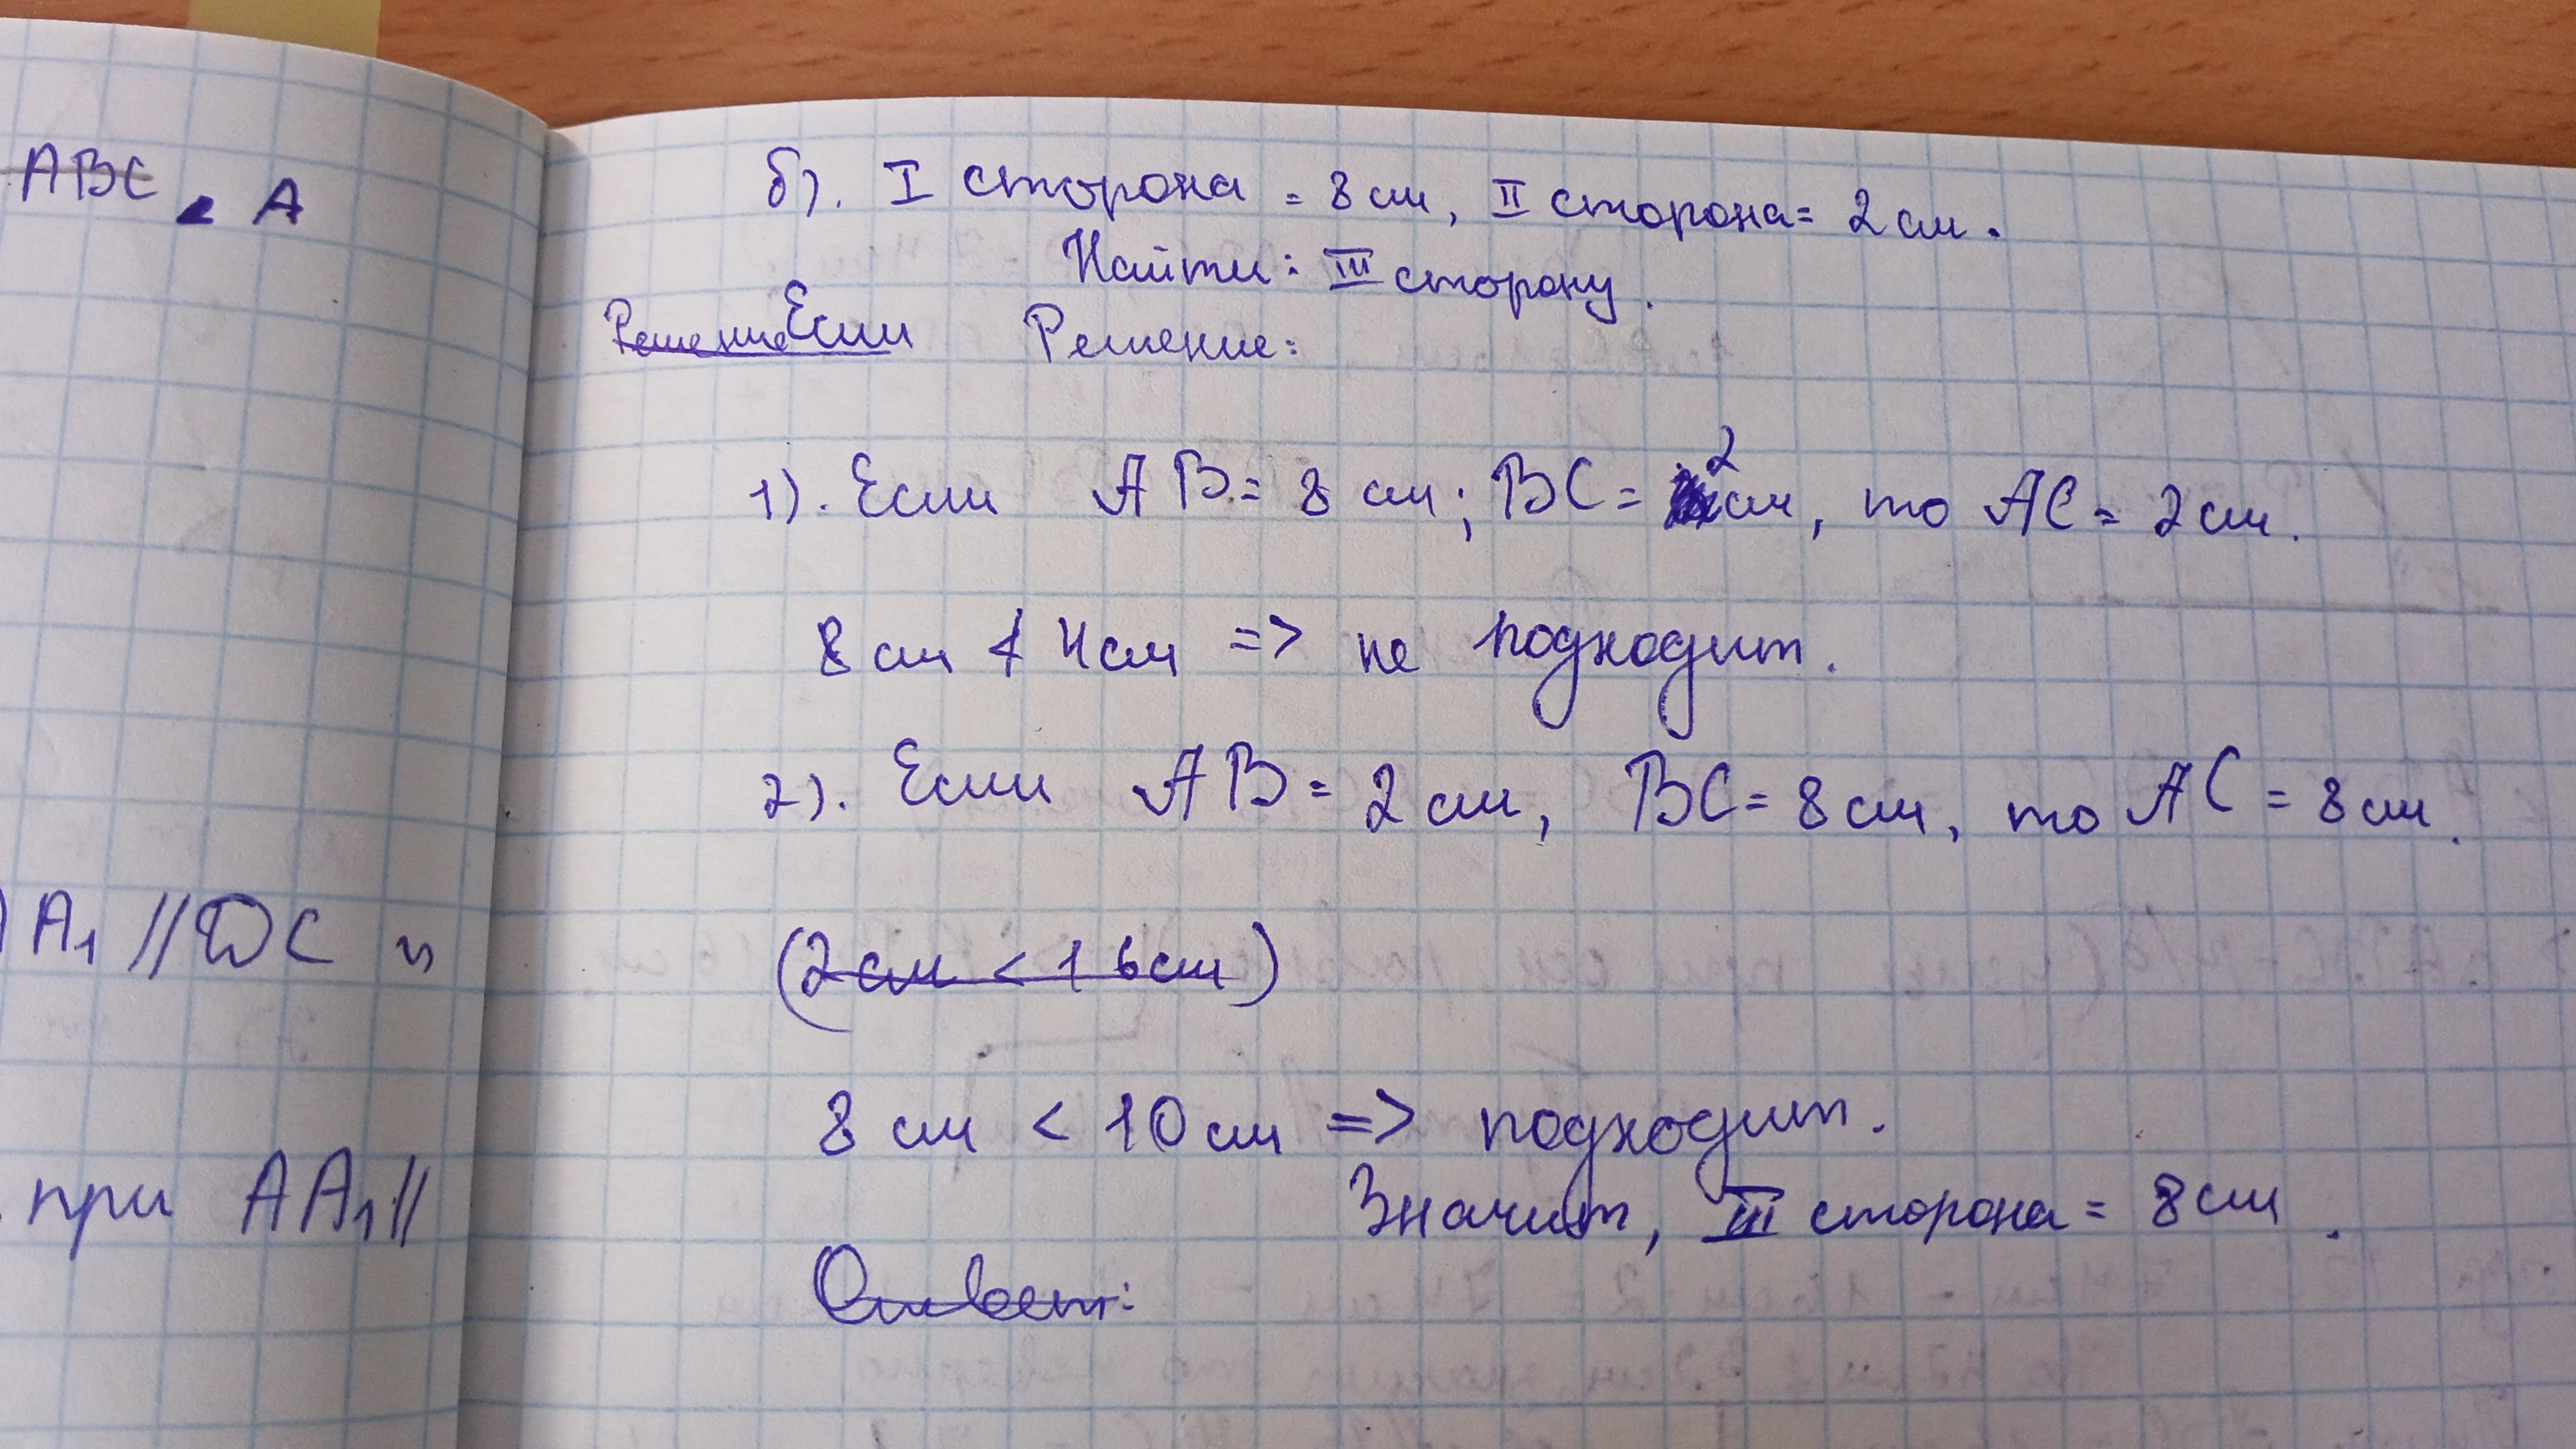 ABC A
б). I сторона = 8 см, II сторона = 2 см.
Найти: III сторону.
Решение Если Решение:
1). Если AB = 8 см; BC = 2 см, то AC = 2 см.
8 см ≮ 4 см => не подходит.
2). Если AB = 2 см, BC = 8 см, то AC = 8 см.
A₁ // DC и
(2 см < 16 см)
8 см < 10 см => подходит.
при AA₁ //
Значит, III сторона = 8 см.
Ответ: